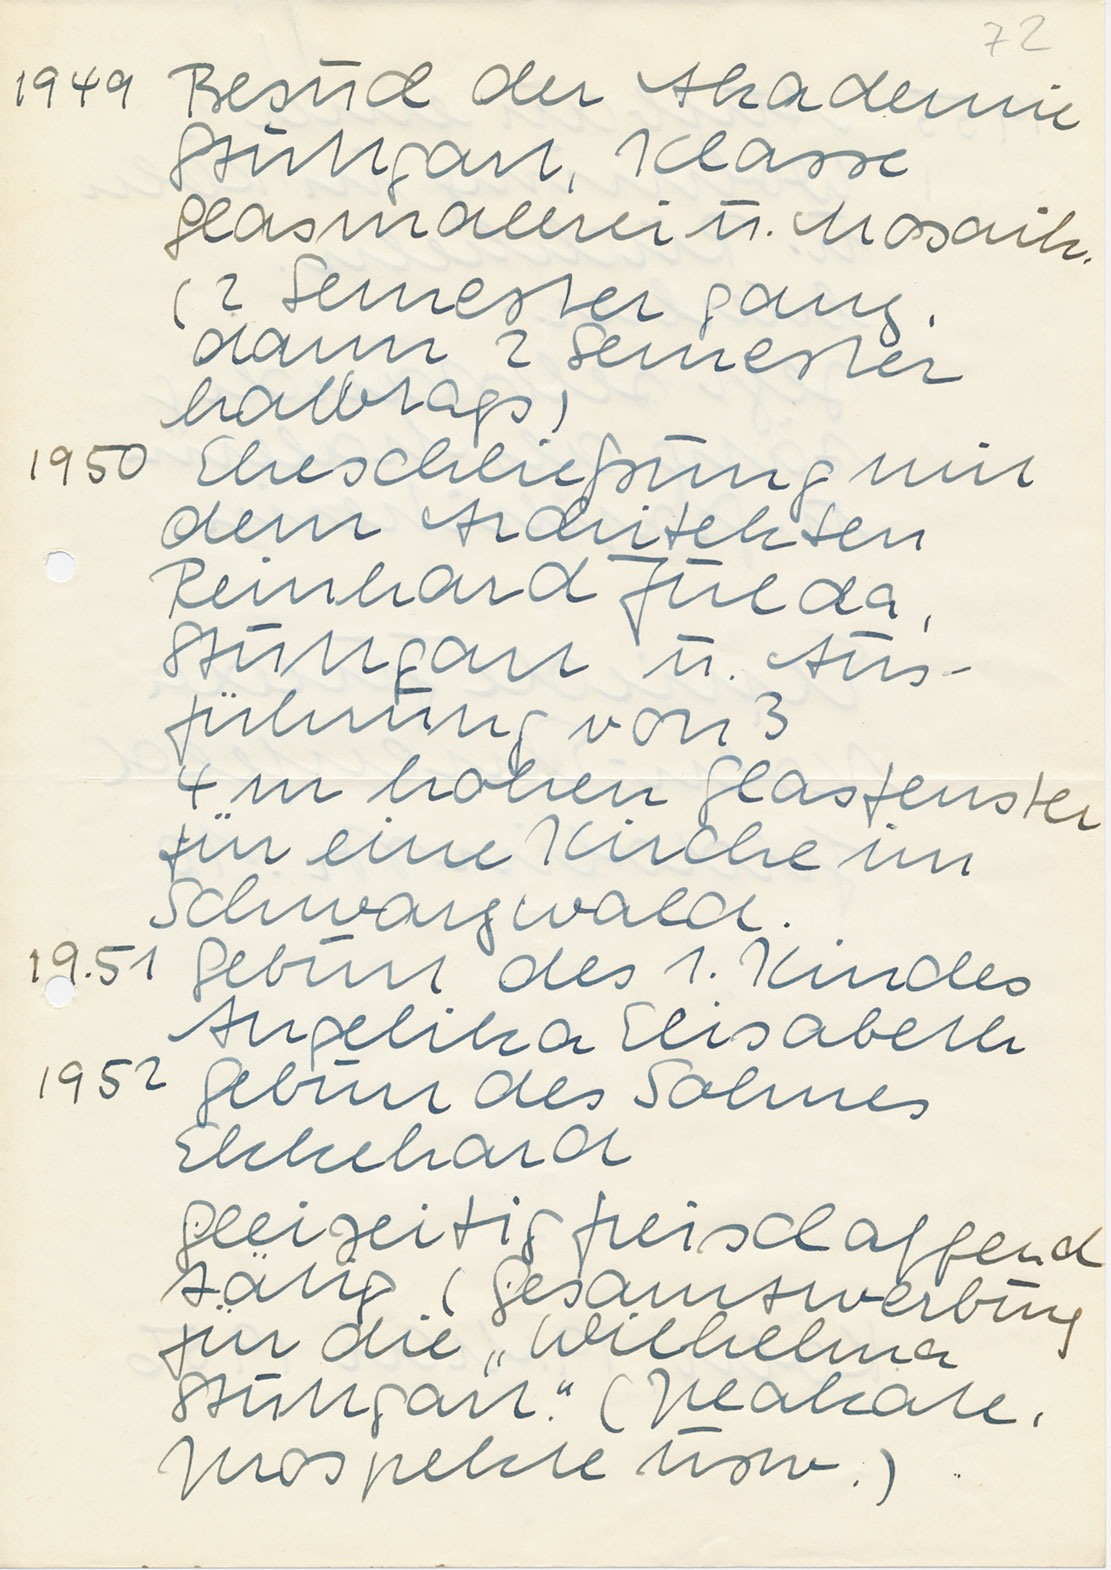 72
1949 Besuch der Akademie
Stuttgart, Klasse
Glasmalerei u. Mosaik.
(2 Semester ganz,
dann 2 Semester
halbtags)
1950 Eheschließung mit
dem Architekten
Reinhard Fulda,
Stuttgart u. Aus-
führung von 3
4 m hohen Glasfenster
für eine Kirche im
Schwarzwald.
19.51 Geburt des 1. Kindes
Angelika Elisabeth
1952 Geburt des Sohnes
Ekkehard
gleizeitig freischaffend
tätig (Gesamtwerbung
für die „Wilhelma
Stuttgart." (Plakate,
Prospekte usw.)